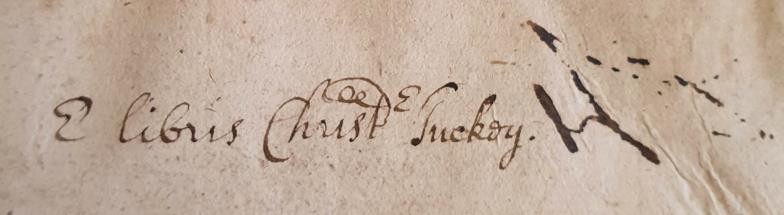 E libris Christ Tuckey.